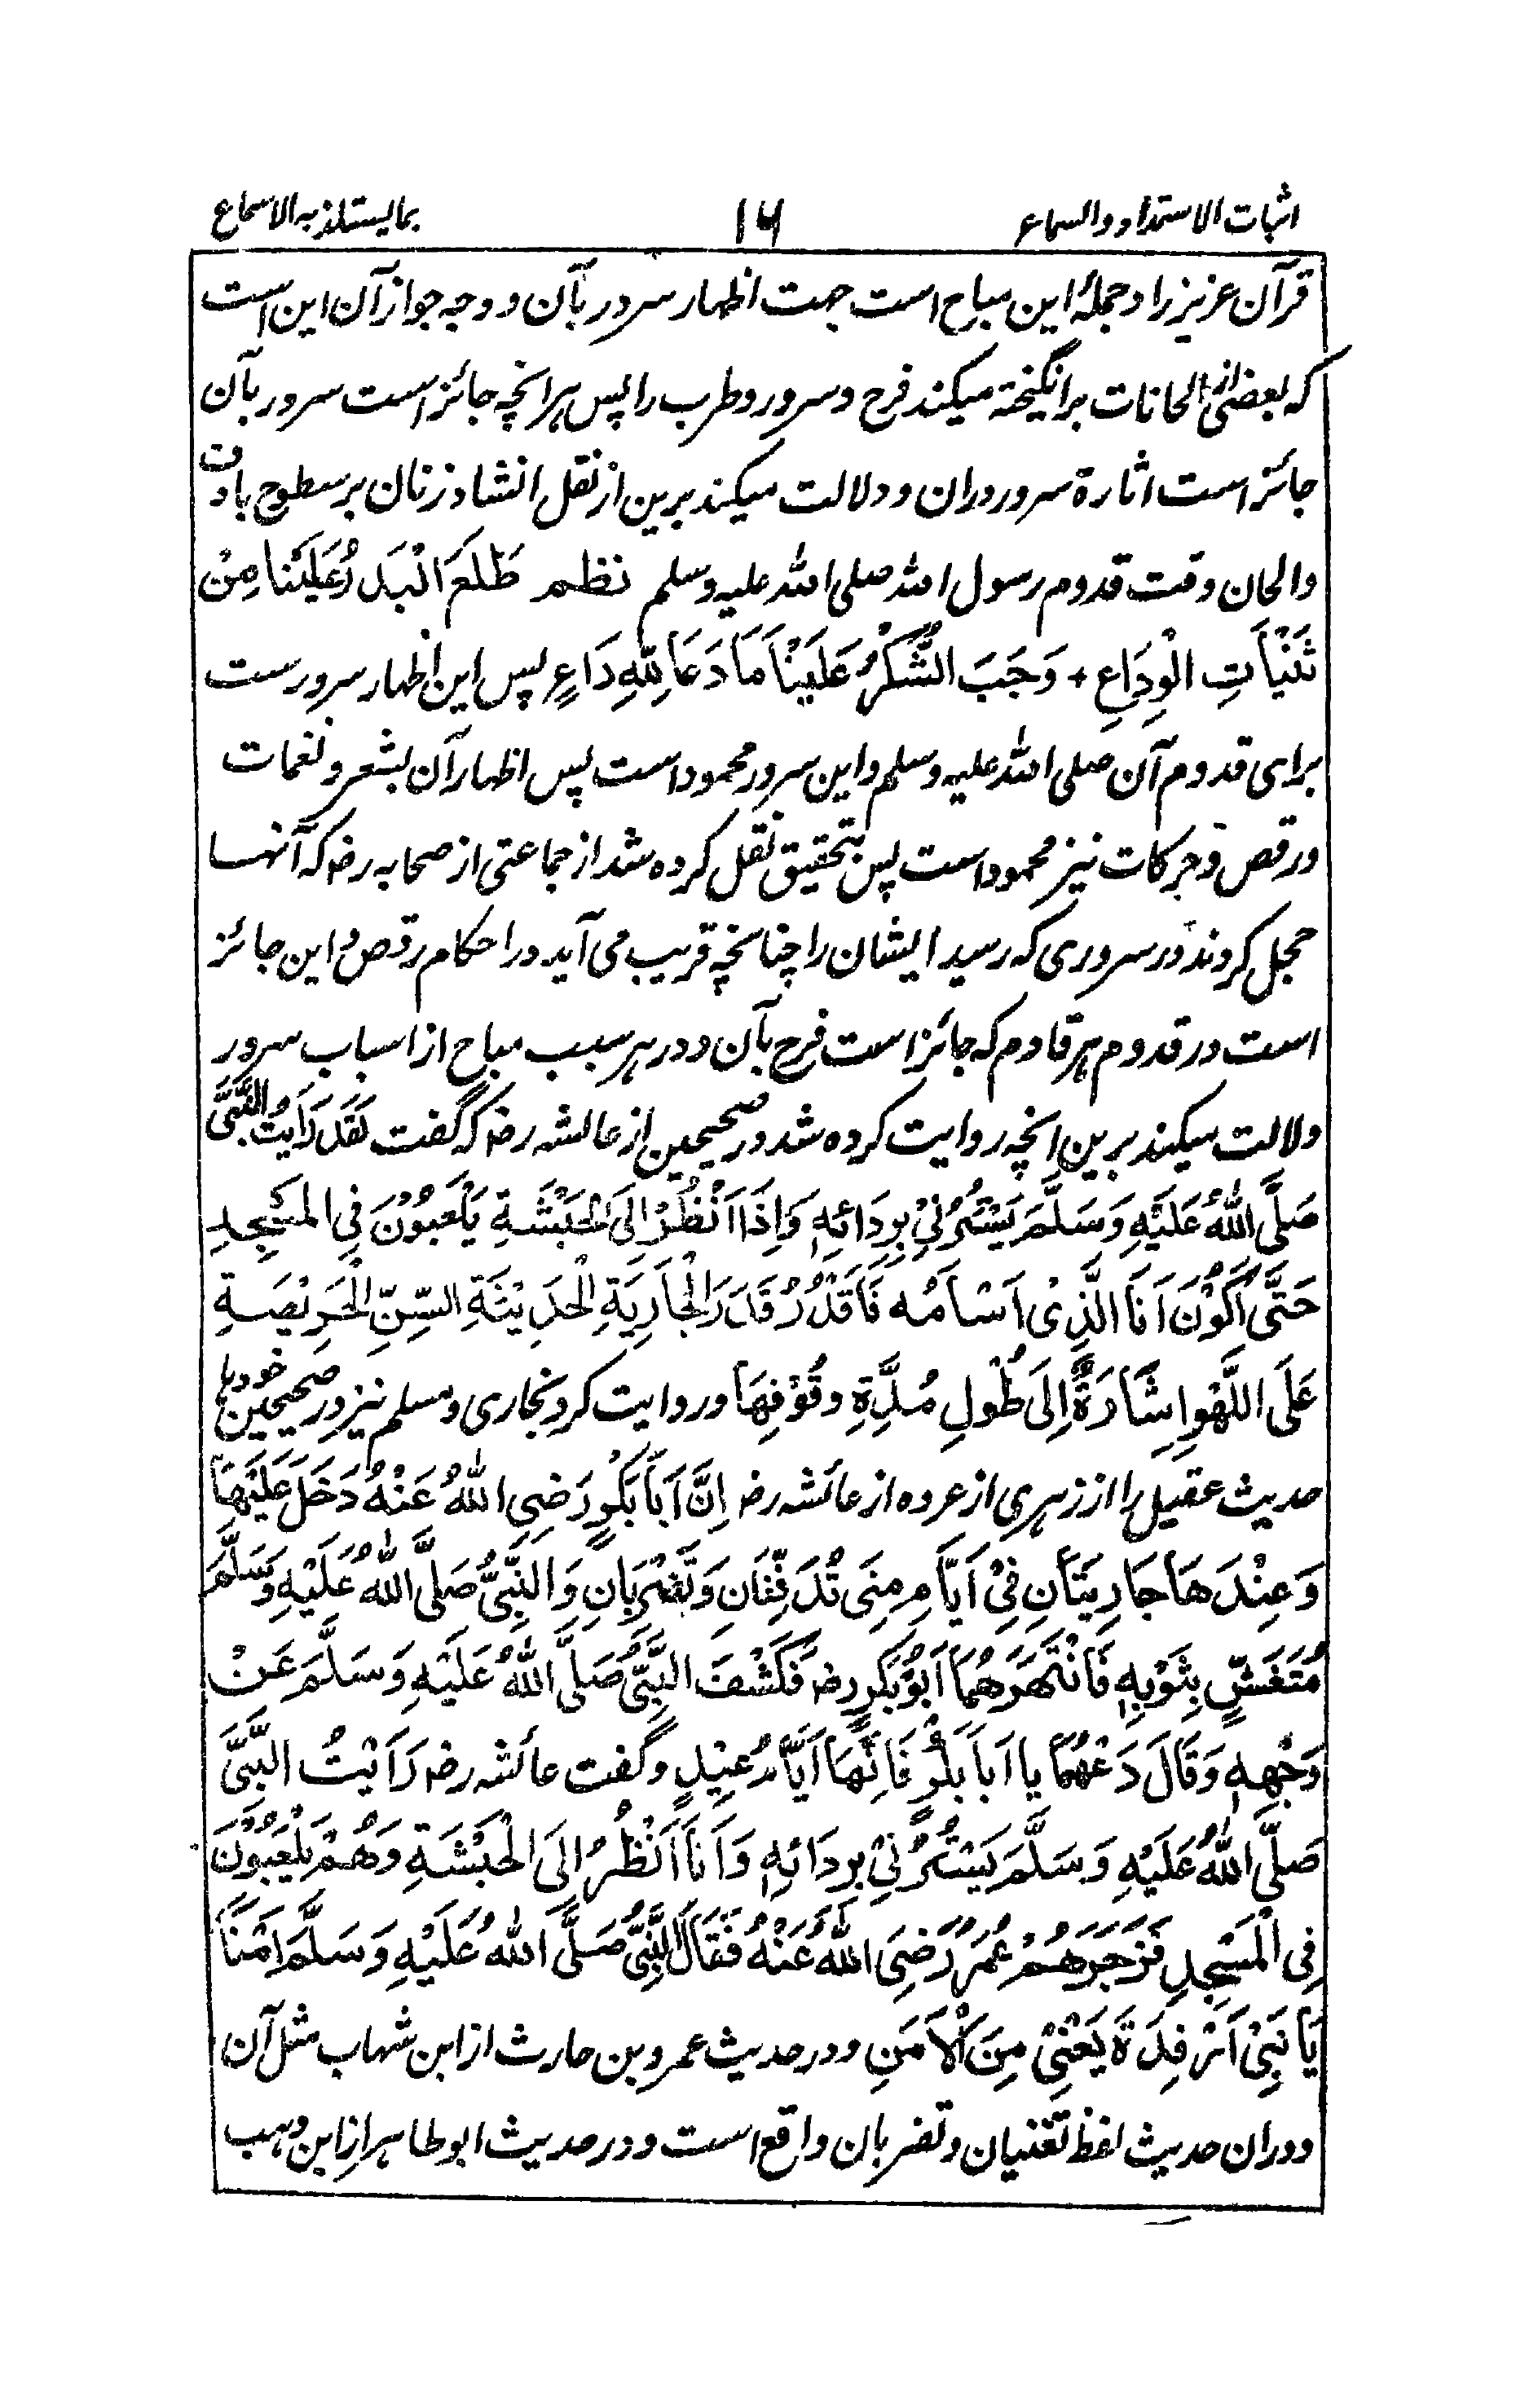 اثبات الاستمداد والسماع ۱۶ بمایستلذ به الاسماع
قرآن عزیز را و جملهٔ این مباح است جهت اظهار سرور بآن و وجه جواز آن این است
که بعضی از الحانات برانگیخته میکند فرح و سرور و طرب را پس هرانچه جائز است سرور بآن
جائز است اثارة سرور دران و دلالت میکند برین از نقل انشاد زنان بر سطوح بادف
والحان وقت قدوم رسول الله صلی الله علیه وسلم نظم طَلَعَ الْبَدْرُ عَلَيْنَا مِنْ
ثَنْيَاتِ الْوِدَاعِ + وَجَبَ الشُّكْرُ عَلَيْنَا مَا دَعَا لِلّٰهِ دَاعٍ پس این اظهار سرورست
برای قدوم آن صلی الله علیه وسلم و این سرور محمود است پس اظهار آن بشعر و نغمات
ورقص و حرکات نیز محمود است پس بتحقیق نقل کرده شد از جماعتی از صحابه رضـ که آنهـا
حجل کردند در سروری که رسید ایشان را چنانچه قریب می آید در احکام رقص و این جائز
است در قدوم هر قادم که جائز است فرح بآن و در هر سبب مباح از اسباب سرور
دلالت میکند برین انچه روایت کرده شد در صحیحین از عائشه رضـ که گفت لَقَدْ رَأَيْتُ النَّبِيَّ
صَلَّى اللّٰهُ عَلَيْهِ وَسَلَّمَ يَسْتُرُنِيْ بِرِدَائِهٖ وَاِذَا اَنْظُرُ اِلَى الْحَبَشَةِ يَلْعَبُوْنَ فِي الْمَسْجِدِ
حَتّٰى اَكُوْنَ اَنَا الَّذِىْ اَسْاَمُه فَاقْدُرُ قَدْرَ الْجَارِيَةِ الْحَدِيْثَةِ السِّنِّ الْحَرِيْصَةِ
عَلَى اللَّهْوِ اِشَارَةٌ اِلَى طُوْلِ مُدَّةِ وقُوْفِهَا و روایت کرد بخاری و مسلم نیز در صحیحین خودها
حدیث عقیل را از زهری از عروه از عائشه رضـ اِنَّ اَبَا بَكْرٍ رَضِىَ اللّٰهُ عَنْهُ دَخَلَ عَلَيْهَا
وَعِنْدَهَا جَارِيَتَانِ فِيْ اَيَّامِ مِنٰى تُدَفِّفَانِ وَتَضْرِبَانِ وَالنَّبِيُّ صَلَّى اللّٰهُ عَلَيْهِ وَسَلَّمَ
مُتَغَشٍّ بِثَوْبِهٖ فَانْتَهَرَهُمَا اَبُوْبَكْرٍ رضـ فَكَشَفَ النَّبِيُّ صَلَّى اللّٰهُ عَلَيْهِ وَسَلَّمَ عَنْ
وَجْهِهٖ وَقَالَ دَعْهُمَا يا اَبَا بَكْرٍ فَاِنَّهَا اَيَّامُ عِيْدٍ و گفت عائشه رضـ رَاَيْتُ النَّبِيَّ
صَلَّى اللّٰهُ عَلَيْهِ وَسَلَّمَ يَسْتُرُنِيْ بِرِدَائِهٖ وَاَنَا اَنْظُرُ اِلَى الْحَبْشَةِ وَهُمْ يَلْعَبُوْنَ
فِى الْمَسْجِدِ فَزَجَرَهُمْ عُمَرُ رَضِىَ اللّٰهُ عَنْهُ فَقَالَ النَّبِيُّ صَلَّى اللّٰهُ عَلَيْهِ وَسَلَّمَ اَمْنًا
يَا بَنِيْ اَرْفِدَةَ يَعْنِيْ مِنَ الْاَمَنِ و در حدیث عمرو بن حارث از ابن شهاب مثل آن
و دران حدیث لفظ تغنیان و تضربان واقع است و در حدیث ابوطاهر از ابن وهب